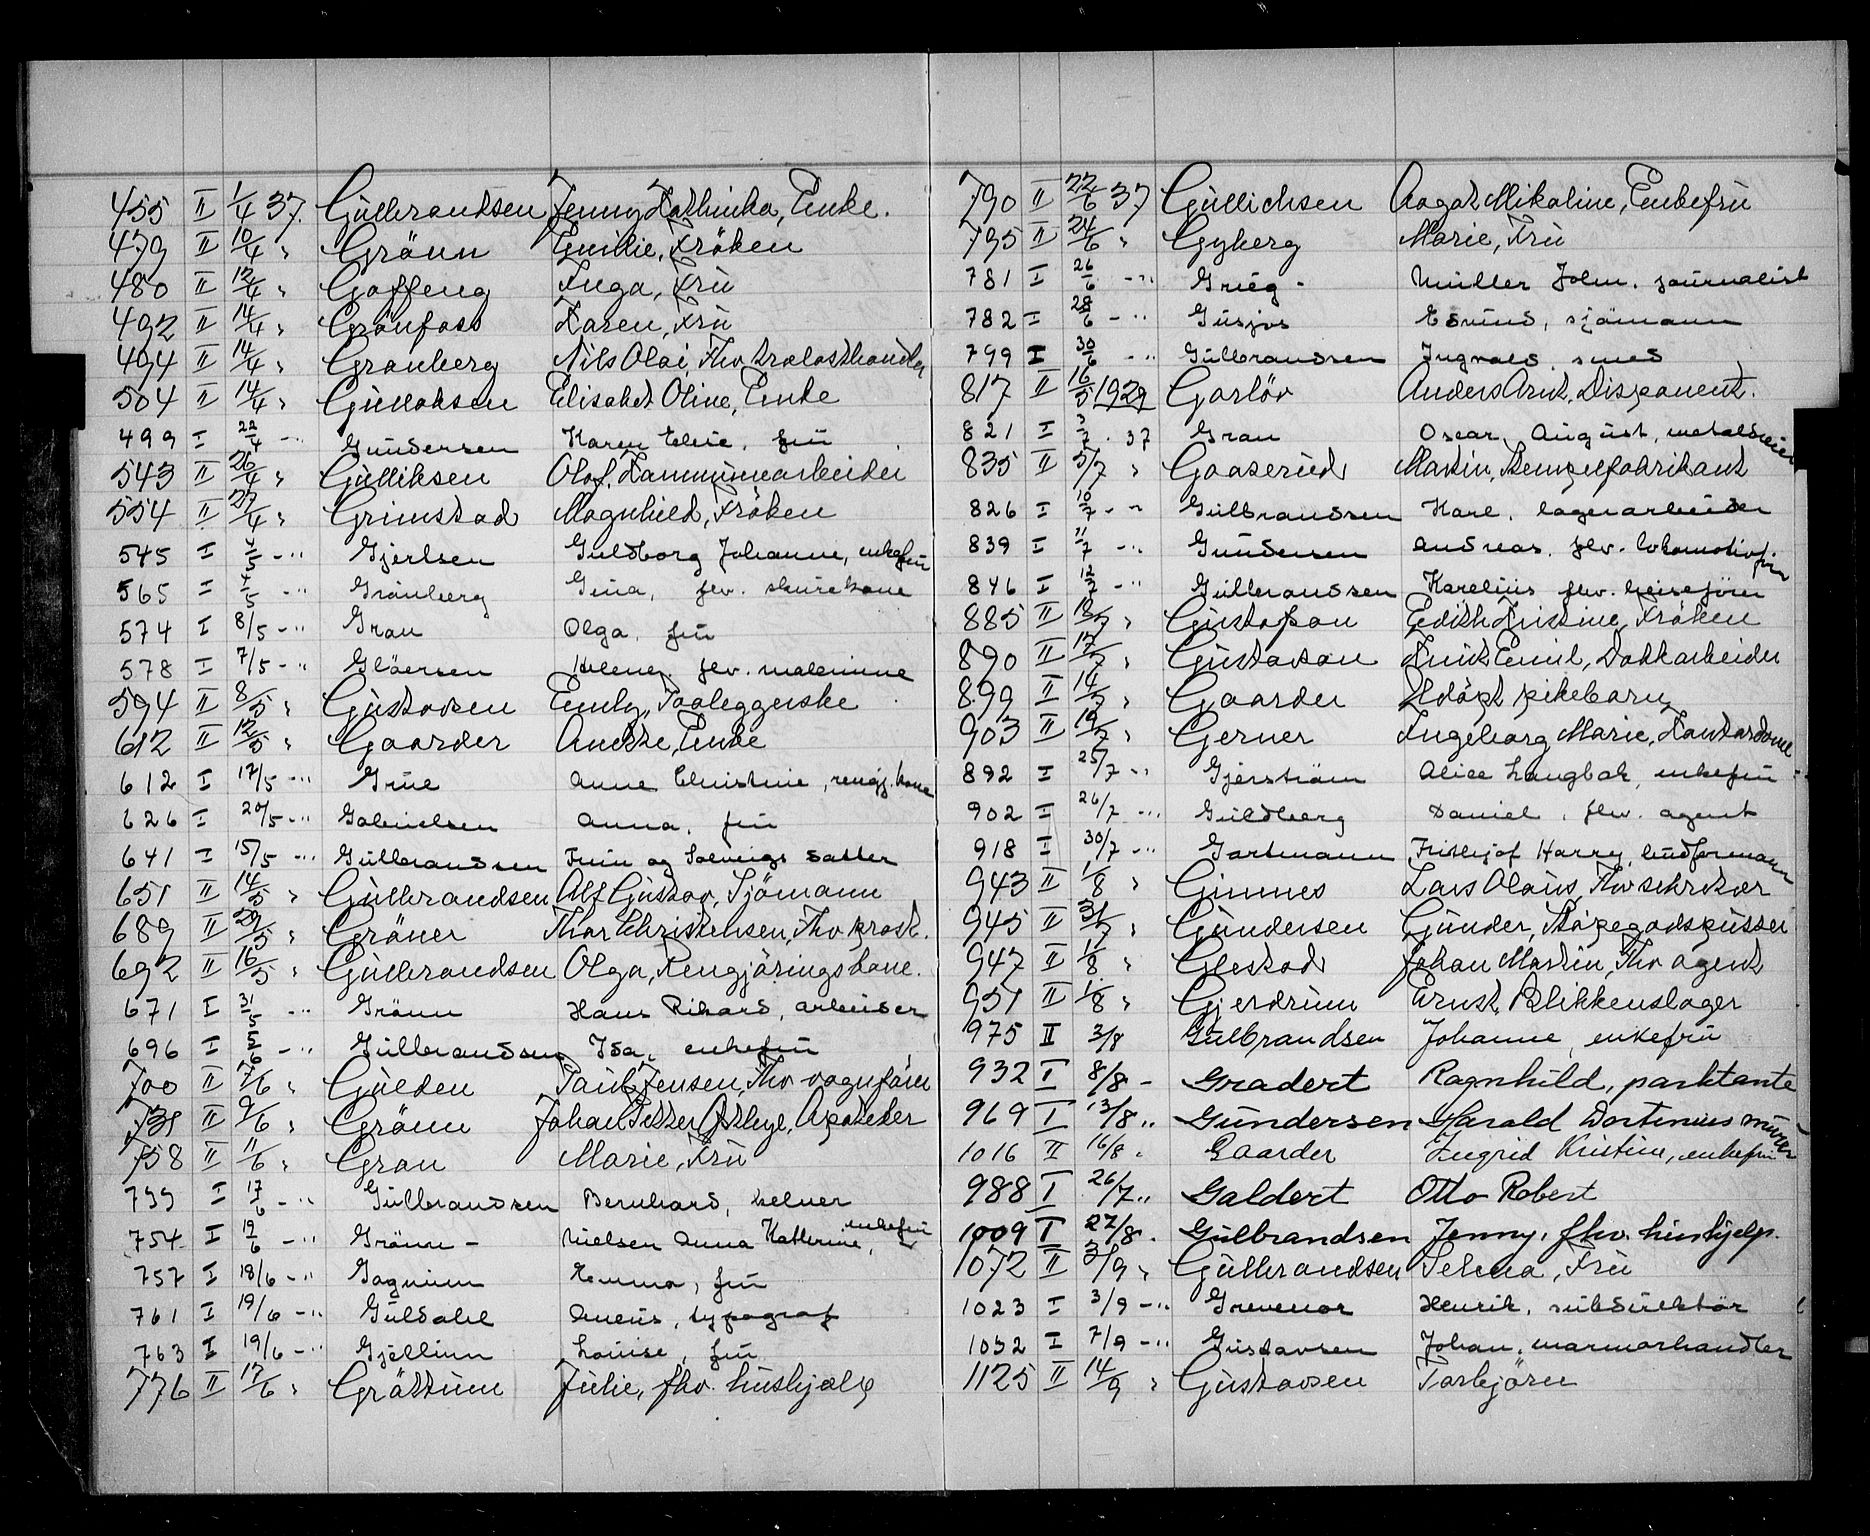 455 II 1/4 37. Gulbrandsen Jenny Kathinka, Enke.
479 II 10/4 " Grönn Emilie, Fröken
480 II 12/4 " Gaffeng Inga, Fru
492 II 14/4 " Grönfoss Karen, Fru
494 II 14/4 " Granberg Nils Olai, Fhv trelasthandler
504 II 14/4 " Gulloksen Elisabet Oline, Enke
499 I 22/4 -" Gundersen Karen Elise, fru
543 II 26/4 " Gulliksen Olaf, Kommunearbeider
554 II 27/4 " Grimstad Magnhild, Fröken
545 I 4/5 -" Gjerlsen Guldborg Johanne, enkefru
565 I 4/5 -" Grönberg Gina, fhv. skurekone
574 I 8/5 -" Gran Olga, fru
578 I 7/5 -" Glöersen Helene, fhv. malerinne
594 II 8/5 " Gustavsen Emly, Paaleggerske
612 II 12/5 " Gaarder Anette, Enke
612 I 17/5 -" Grue Anne Christine, rengj. kone
626 I 20/5 -" Gabrielsen Anna, fru
641 I 15/5 -" Gulbrandsen Finn og Solveigs datter
651 II 14/5 " Gulbrandsen Alf Gustav, Sjömann
689 II 29/5 " Gröner Thor Christensen, Fhv prost.
692 II 16/5 " Gulbrandsen Olga, Rengjöringskone.
671 I 31/5 -" Grönn Hans Rikard, arbeider
696 I 5/6 -" Gulbrandsen Ida, enkefru
700 II 7/6 " Gulden Paul Jensen, Fhv vognförer
731 II 9/6 " Grönn Johan Petter Østbye, Apoteker
758 II 11/6 " Gran Marie, Fru
739 I 17/6 -" Gulbrandsen Bernhard, kelner
754 I 19/6 -" Grönn - Nielsen Anna Kathrine, enkefru
757 I 18/6 -" Gagnum Emma, fru
761 I 19/6 -" Guldahl Aneus, typograf
763 I 19/6 -" Gjellum Louise, fru
776 II 17/6 " Gråttum Julie, fhv. hushjelp
790 II 22/6 37 Gullichsen Aagot Mikaline, Enkefru
795 II 24/6 " Gyberg Marie, Fru
781 I 26/6 -" Grieg - Müller John, journalist
782 I 28/6 -" Gusjos Edvind, sjömann
799 I 30/6 -" Gulbrandsen Ingvald, smed
817 II 16/5 1929 Garlöv Anders Arnt, Disponent.
821 I 3/7 . 37 Gran Oscar August, metaldreier
835 II 5/7 " Gaaserud Martin, Stempelfabrikant
826 I 10/7 -" Gulbrandsen Karl, lagerarbeider
839 I 11/7 -" Gundersen Andreas, fhv. lokomotivf.
846 I 12/7 -" Gulbrandsen Karelius fhv. heisefører
885 II 18/7 " Gustafson Edith Kristine, Fröken
890 II 17/7 " Gustavson Knut Emil, Dokkarbeider
899 II 14/7 " Gaarder Udöpt pikebarn
903 II 19/7 " Gerner Ingeborg Marie, Kontordame
892 I 25/7 -" Gjerström Alice Langbak, enkefru
902 I 26/7 -" Guldberg Daniel, fhv. agent
918 I 30/7 -" Gartmann Fridtjof Harry, budformann
943 II 1/8 " Gimnes Lars Olaus, Fhv sekretær
945 II 31/7 " Gundersen Gunder, Støpegodspusser
947 II 1/8 " Glestad Johan Martin, Fhv agent
951 II 1/8 " Gjerdrum Ernst, Blikkenslager
975 II 3/8 Gulbrandsen Johanne, enkefru
932 I 8/8 - Gradert Ragnhild, parktante
969 I 13/8 " Gundersen Harald Dortinius murer
1016 II 16/8 " Gaarder Ingrid Kristine, enkefru
988 I 26/7 " Galdert Otto Robert
1009 I 27/8 . Gulbrandsen Jenny, fhv. hushjelp.
1072 II 3/9 " Gulbrandsen Selma, Fru
1023 I 3/9 -" Grevenor Henrik, subdirektör
1052 I 7/9 -" Gustavsen Johan, marmorhandler
1125 II 14/9 " Gustavsen Torbjörn